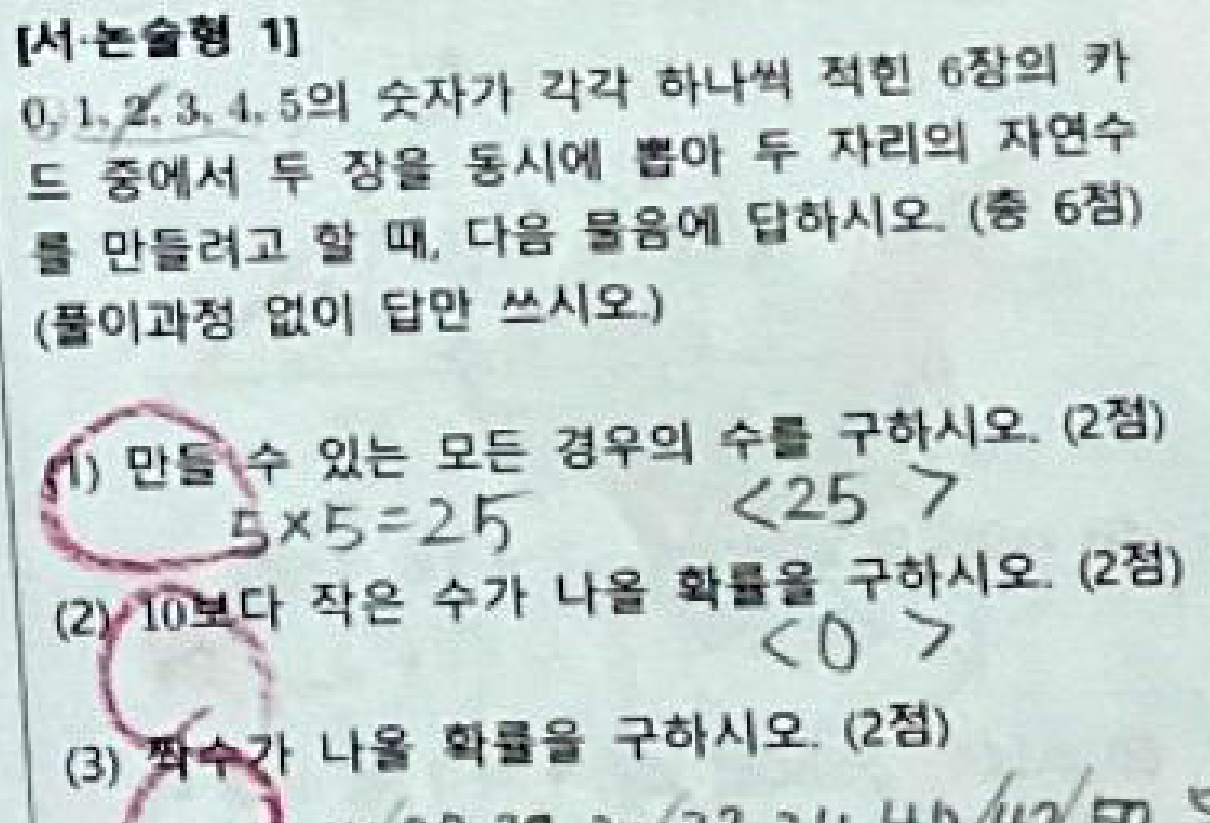 [서·논술형 1]
0, 1, 2, 3, 4, 5의 숫자가 각각 하나씩 적힌 6장의 카
드 중에서 두 장을 동시에 뽑아 두 자리의 자연수
를 만들려고 할 때, 다음 물음에 답하시오. (총 6점)
(풀이과정 없이 답만 쓰시오.)
(1) 만들 수 있는 모든 경우의 수를 구하시오. (2점)
5×5=25 <25 >
(2) 10보다 작은 수가 나올 확률을 구하시오. (2점)
<0 >
(3) 짝수가 나올 확률을 구하시오. (2점)